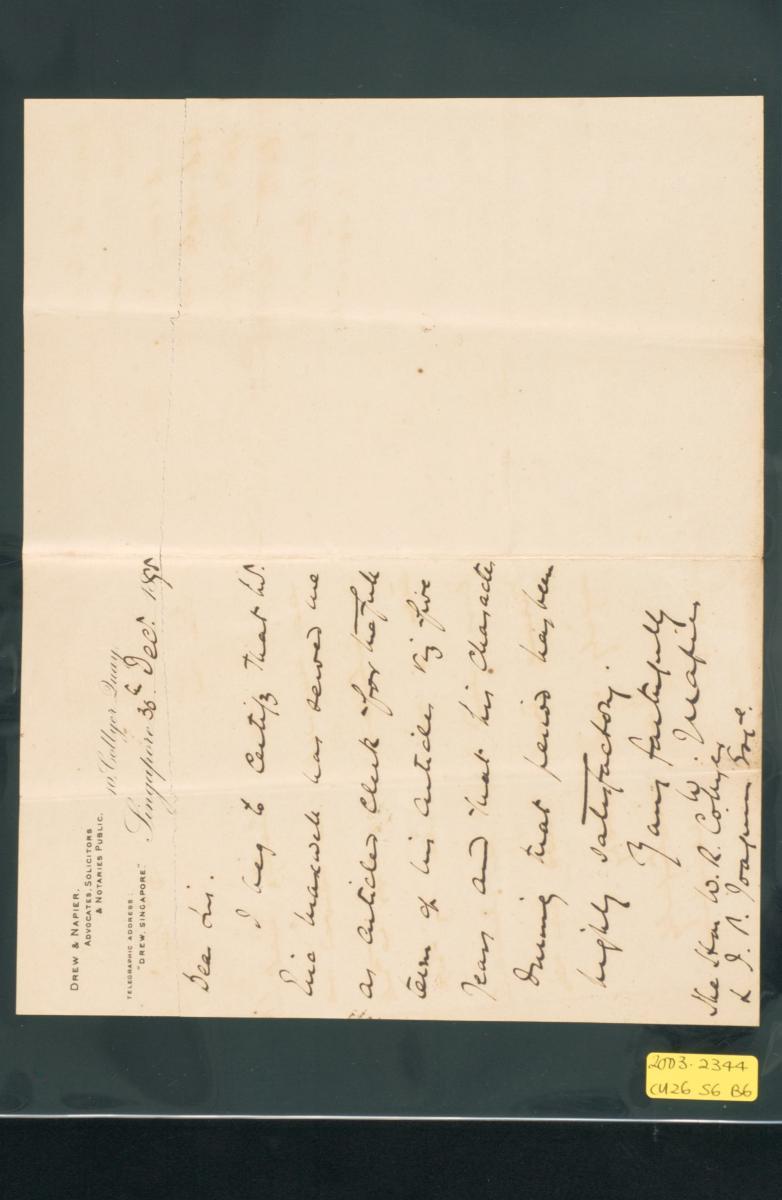 DREW & NAPIER.
ADVOCATES, SOLICITORS
& NOTARIES PUBLIC.
TELEGRAPHIC ADDRESS:
"DREW, SINGAPORE"
10, Collyer Quay,
Singapore 30th Decr. 189
Dear Sirs.
I beg to certify that Mr.
Eric Maxwell has served me
as articled clerk for the full
term of his articles viz five
years and that his character
during that period has been
highly satisfactory.
Yours faithfully
W. Napier
The Hon W. R. Collyer
& J. P. Joaquim Esqre.
2003.2344
CU26 S6 B6